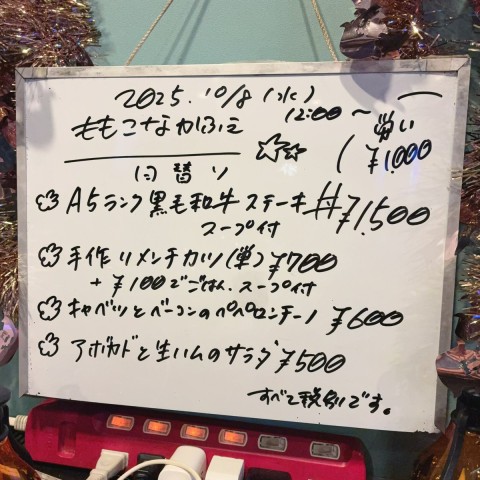 2025.10/8(水)
12:00〜
ももこなかふえ
(¥1,000
日替り
A5ランク黒毛和牛ステーキ丼¥1,500
スープ付
手作りメンチカツ(単)¥700
+¥100でごはん、スープ付
キャベツとベーコンのペペロンチーノ¥600
アボカドと生ハムのサラダ¥500
すべて税別です。